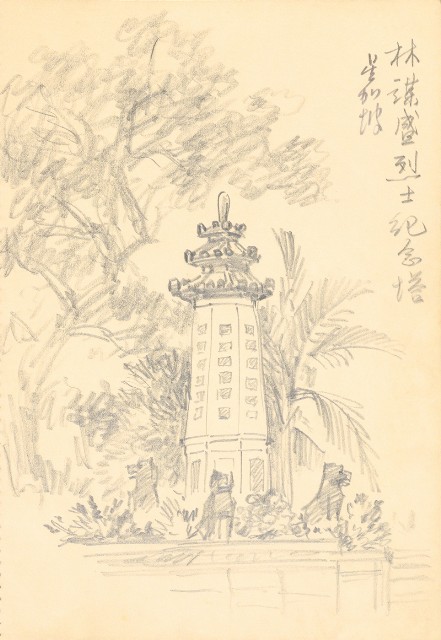 林謀盛烈士纪念塔
星加坡